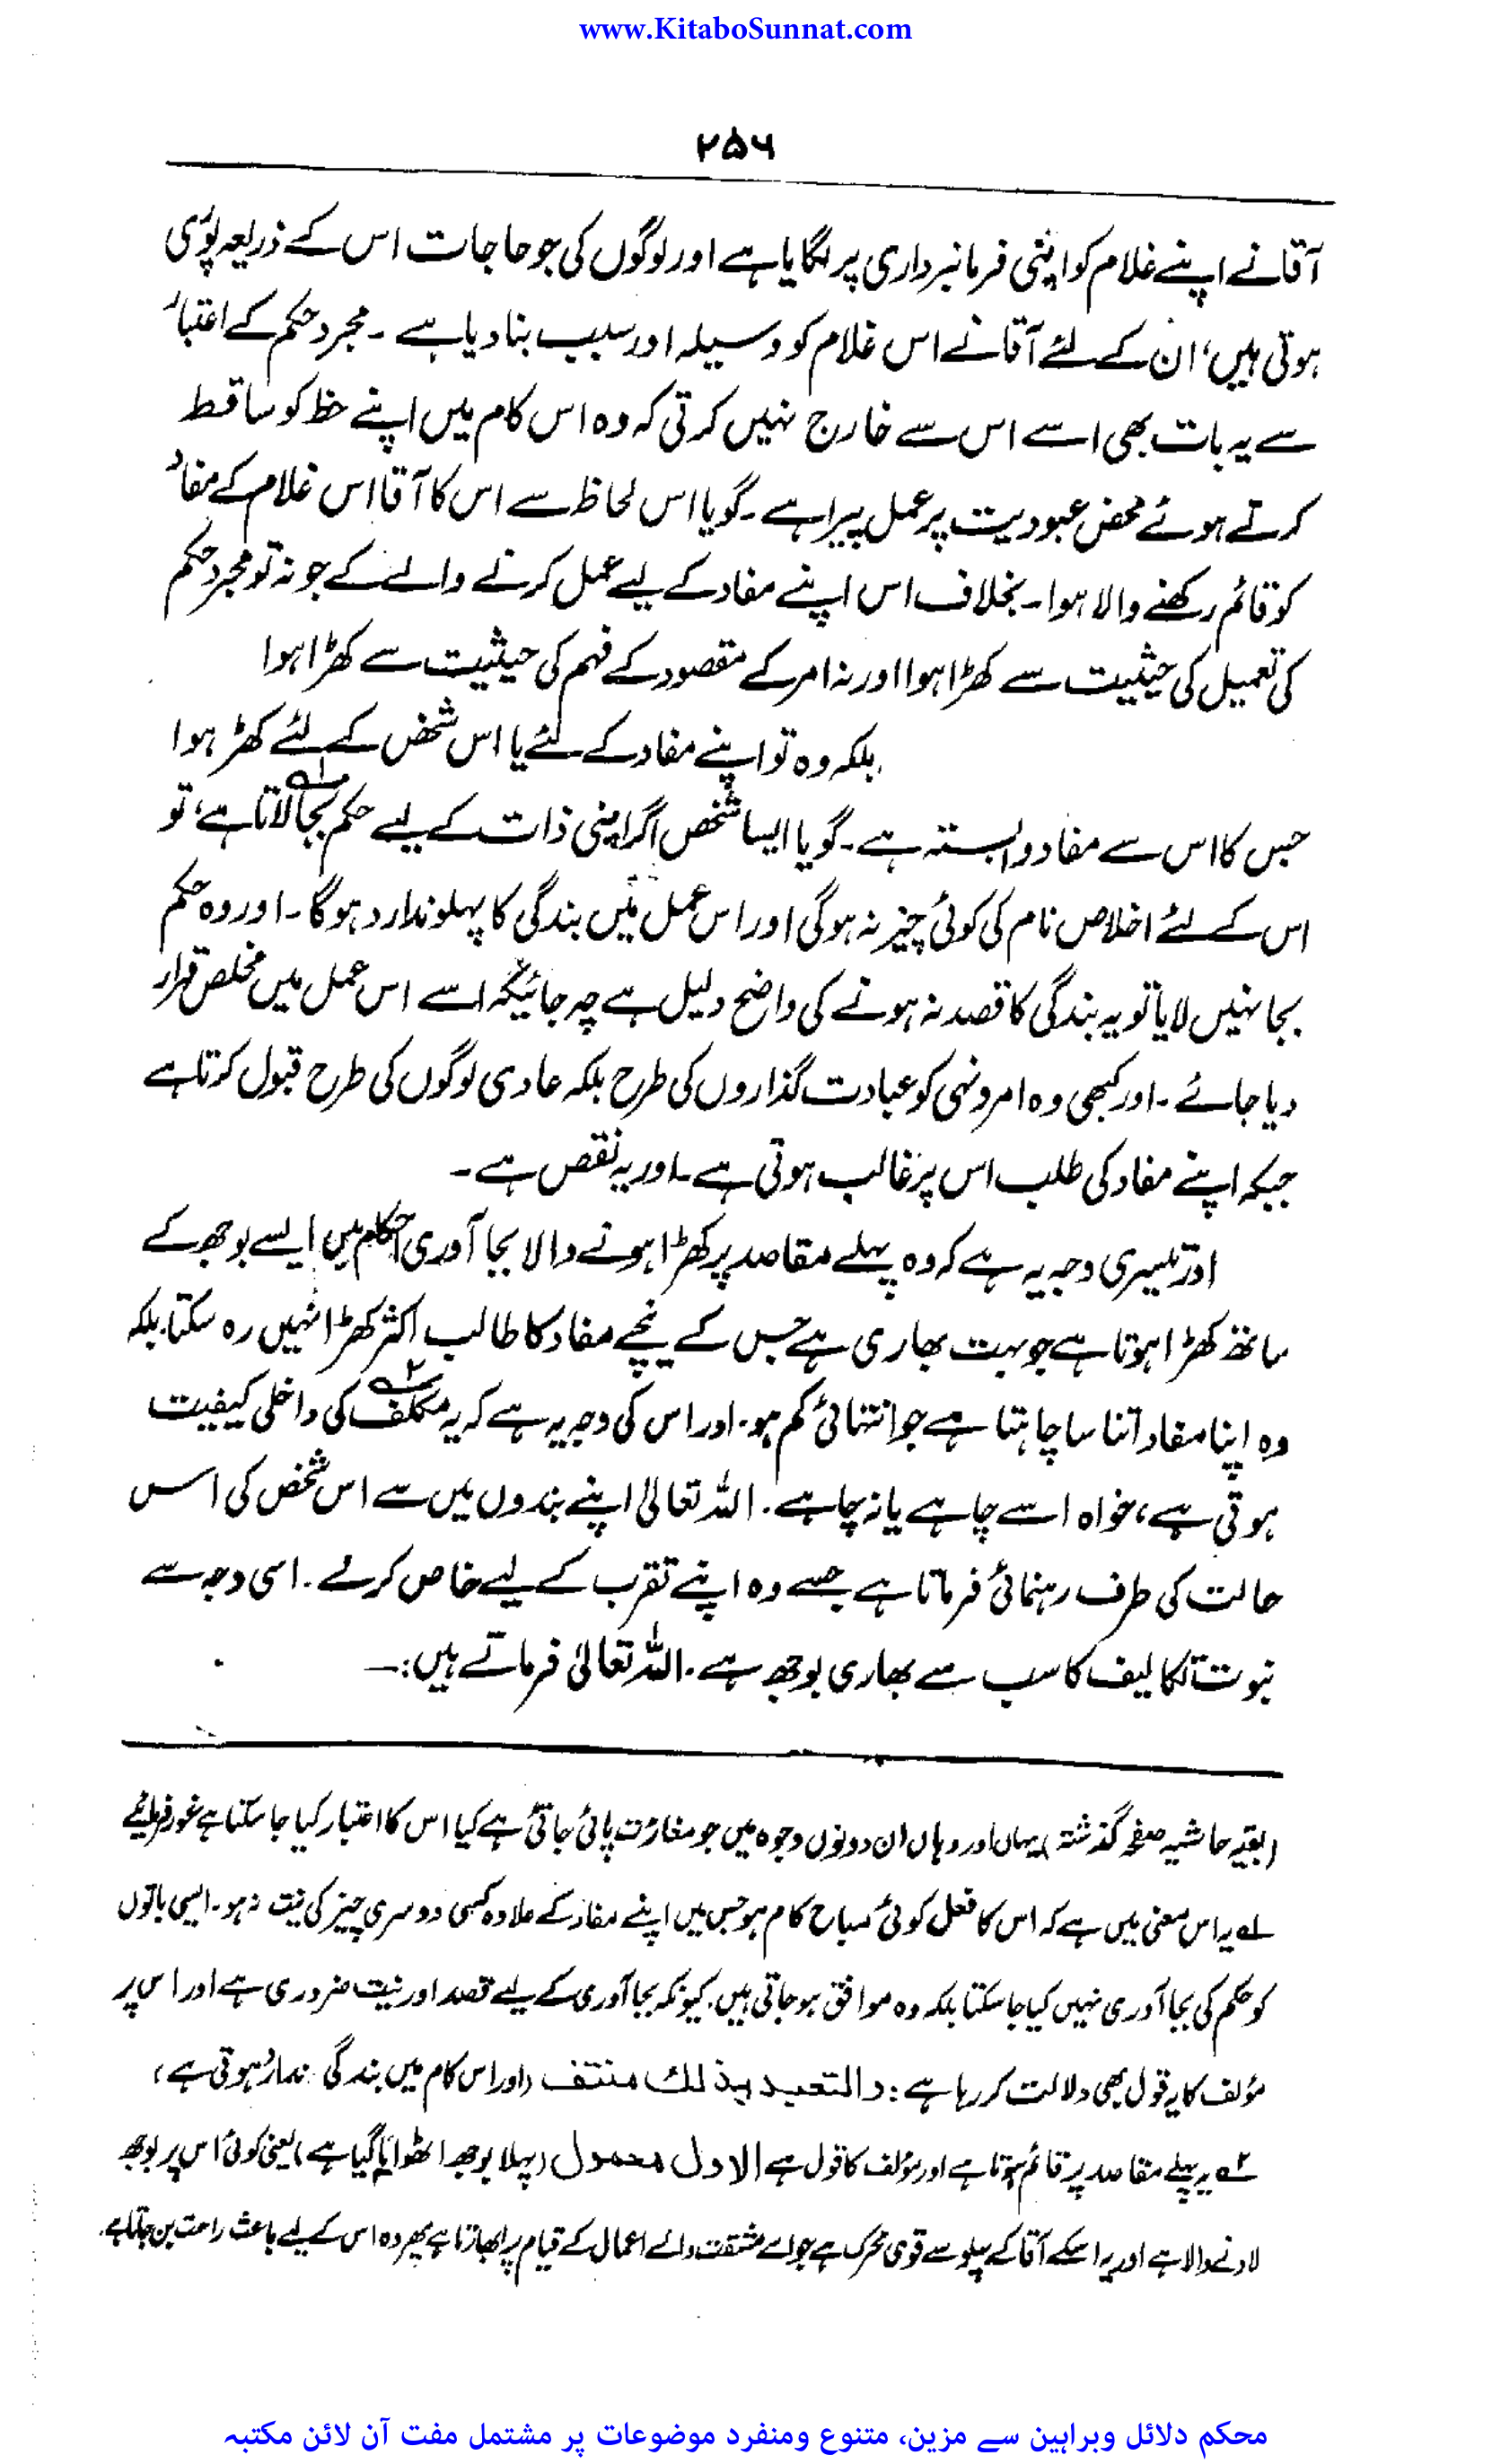 www.KitaboSunnat.com
۲۵۶
آقا نے اپنے غلام کو اپنی فرمانبرداری پر لگایا ہے اور لوگوں کی جو حاجات اس کے ذریعہ پوری
ہوتی ہیں، ان کے لئے آقا نے اس غلام کو وسیلہ اور سبب بنا دیا ہے ۔ مجرد حکم کے اعتبار
سے یہ بات بھی اسے اس سے خارج نہیں کرتی کہ وہ اس کام میں اپنے حظ کو ساقط
کرتے ہوئے محض عبودیت پر عمل پیرا ہے ۔ گویا اس لحاظ سے اس کا آقا اس غلام کے مفاد
کو قائم رکھنے والا ہوا ۔ بخلاف اس اپنے مفاد کے لیے عمل کرنے والے کے جو نہ تو مجرد حکم
کی تعمیل کی حیثیت سے کھڑا ہوا اور نہ امر کے مقصود کے فہم کی حیثیت سے کھڑا ہوا
بلکہ وہ تو اپنے مفاد کے لئے یا اس شخص کے لئے کھڑ ہوا
جس کا اس سے مفاد وابستہ ہے ۔ گویا ایسا شخص اگر اپنی ذات کے لیے حکم بجا لاتا ہے ۱؎، تو
اس کے لئے اخلاص نام کی کوئی چیز نہ ہوگی اور اس عمل میں بندگی کا پہلو ندارد ہوگا ۔ اور وہ حکم
بجا نہیں لایا تو یہ بندگی کا قصد نہ ہونے کی واضح دلیل ہے چہ جائیکہ اسے اس عمل میں مخلص قرار
دیا جائے ۔ اور کبھی وہ امر و نہی کو عبادت گذاروں کی طرح بلکہ عادی لوگوں کی طرح قبول کرتا ہے
جبکہ اپنے مفاد کی طلب اس پر غالب ہوتی ہے ۔ اور یہ نقص ہے ۔
اور تیسری وجہ یہ ہے کہ وہ پہلے مقاصد پر کھڑا ہونے والا بجا آوری احکام میں ایسے بوجھ کے
ساتھ کھڑا ہوتا ہے جو بہت بھاری ہے جس کے نیچے مفاد کا طالب اکثر کھڑا نہیں رہ سکتا، بلکہ
وہ اپنا مفاد اتنا سا چاہتا ہے جو انتہائی کم ہو ۔ اور اس کی وجہ یہ ہے کہ یہ مکلف ۲؎ کی داخلی کیفیت
ہوتی ہے، خواہ اسے چاہے یا نہ چاہے ۔ اللہ تعالیٰ اپنے بندوں میں سے اس شخص کی اس
حالت کی طرف رہنمائی فرماتا ہے جسے وہ اپنے تقرب کے لیے خاص کر لے ۔ اسی وجہ سے
نبوت تکالیف کا سب سے بھاری بوجھ ہے ۔ اللہ تعالیٰ فرماتے ہیں :-
(بقیہ حاشیہ صفحہ گذشتہ) یہاں اور وہاں ان دونوں وجوہ میں جو مغائرت پائی جاتی ہے کیا اس کا اعتبار کیا جا سکتا ہے غور فرمائیے
۱؎ یہ اس معنی میں ہے کہ اس کا فعل کوئی مباح کام ہو جس میں اپنے مفاد کے علاوہ کسی دوسری چیز کی نیت نہ ہو ۔ ایسی باتوں
کو حکم کی بجا آوری نہیں کیا جا سکتا بلکہ وہ موافق ہو جاتی ہیں، کیونکہ بجا آوری کے لیے قصد اور نیت ضروری ہے اور اس پر
مؤلف کا یہ قول بھی دلالت کر رہا ہے : والتعبد بذلك منتف (اور اس کام میں بندگی ندارد ہوتی ہے)
۲؎ یہ پہلے مقاصد پر قائم ہوتا ہے اور مؤلف کا قول ہے الاول محمول (پہلا بوجھ اٹھوایا گیا ہے) یعنی کوئی اس پر بوجھ
لادنے والا ہے اور یہ اسکے آقا کے پہلو سے قوی محرک ہے جو اسے مشقت والے اعمال کے قیام پر ابھارتا ہے پھر وہ اس کے لیے باعث راحت بن جاتا ہے.
محکم دلائل وبراہین سے مزین، متنوع ومنفرد موضوعات پر مشتمل مفت آن لائن مکتبہ